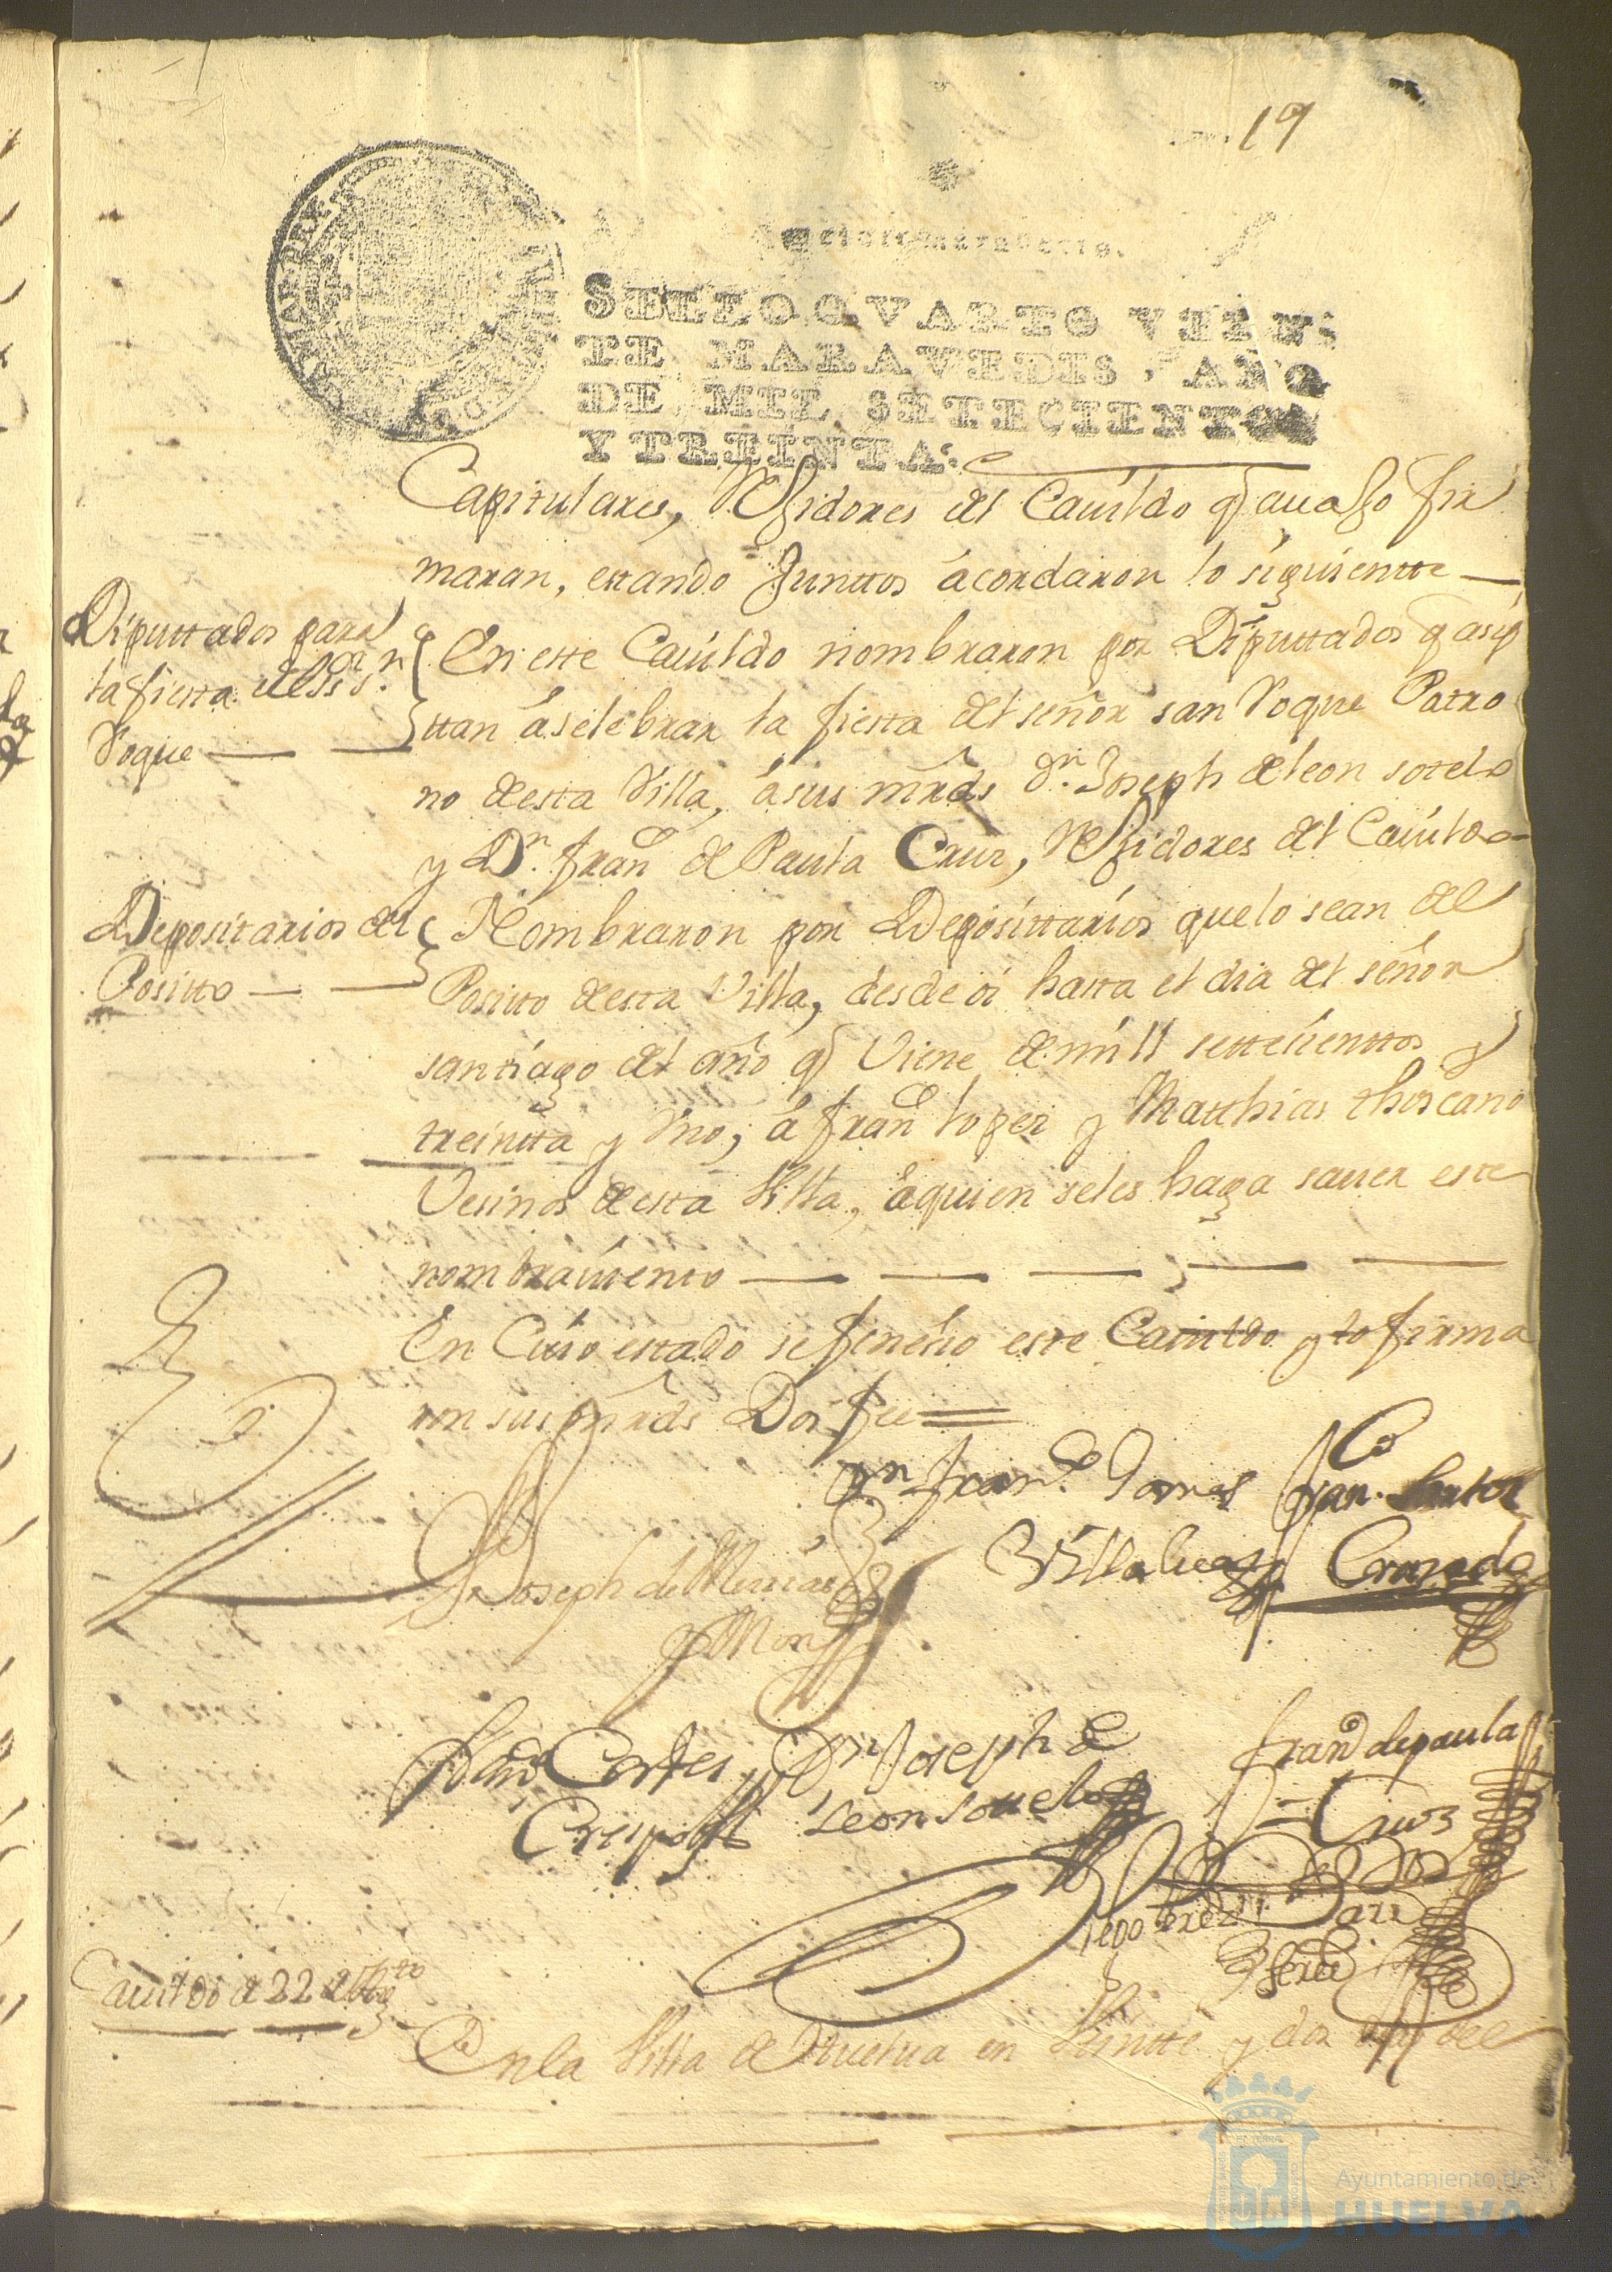 19
SELLO QVARTO VEIN-
TE MARAVEDIS, AÑO
DE MIL SETECIENTOS
Y TREINTA.
Capitulares, Rexidores del Cauildo q auaxo fir
maran, estando Junttos acordaron lo siguientte
Diputtados para
la fiesta del Sr. Sn.
Roque
En este Cauildo nombraron por Diputtados q asis
ttan á selebrar la fiesta del señor san Roque Patro
no desta Villa, á sus mrds Dn. Joseph de leon sotelo
y Dn. franco de Paula Cruz, Rexidores del Cauildo
Depositarios del
Positto
Nombraron por Deposittarios que lo sean del
Positto desta Villa, desde oi hasta el dia del señor
santiago del año q Viene de mill settesienttos y
treintta y Vno, á franco lopez y Matthias thoscano
Vesinos desta Villa, á quien seles haga sauer este
nombramiento
En Cuio estado se fenesio este Cauildo y lo firma
ron sus mrds Doi fee
Dn franco Gomes
Villalua
Fran.co
Granado
Joseph de
y Mon
Cortes
Crespo
Dn Joseph de
leon sottelo
franco de paula
Cruz
Diego
Cauildo de 22 de Agto
En la Villa de Huelua en Veintte y dos dias del
Ayuntamiento de
HUELVA